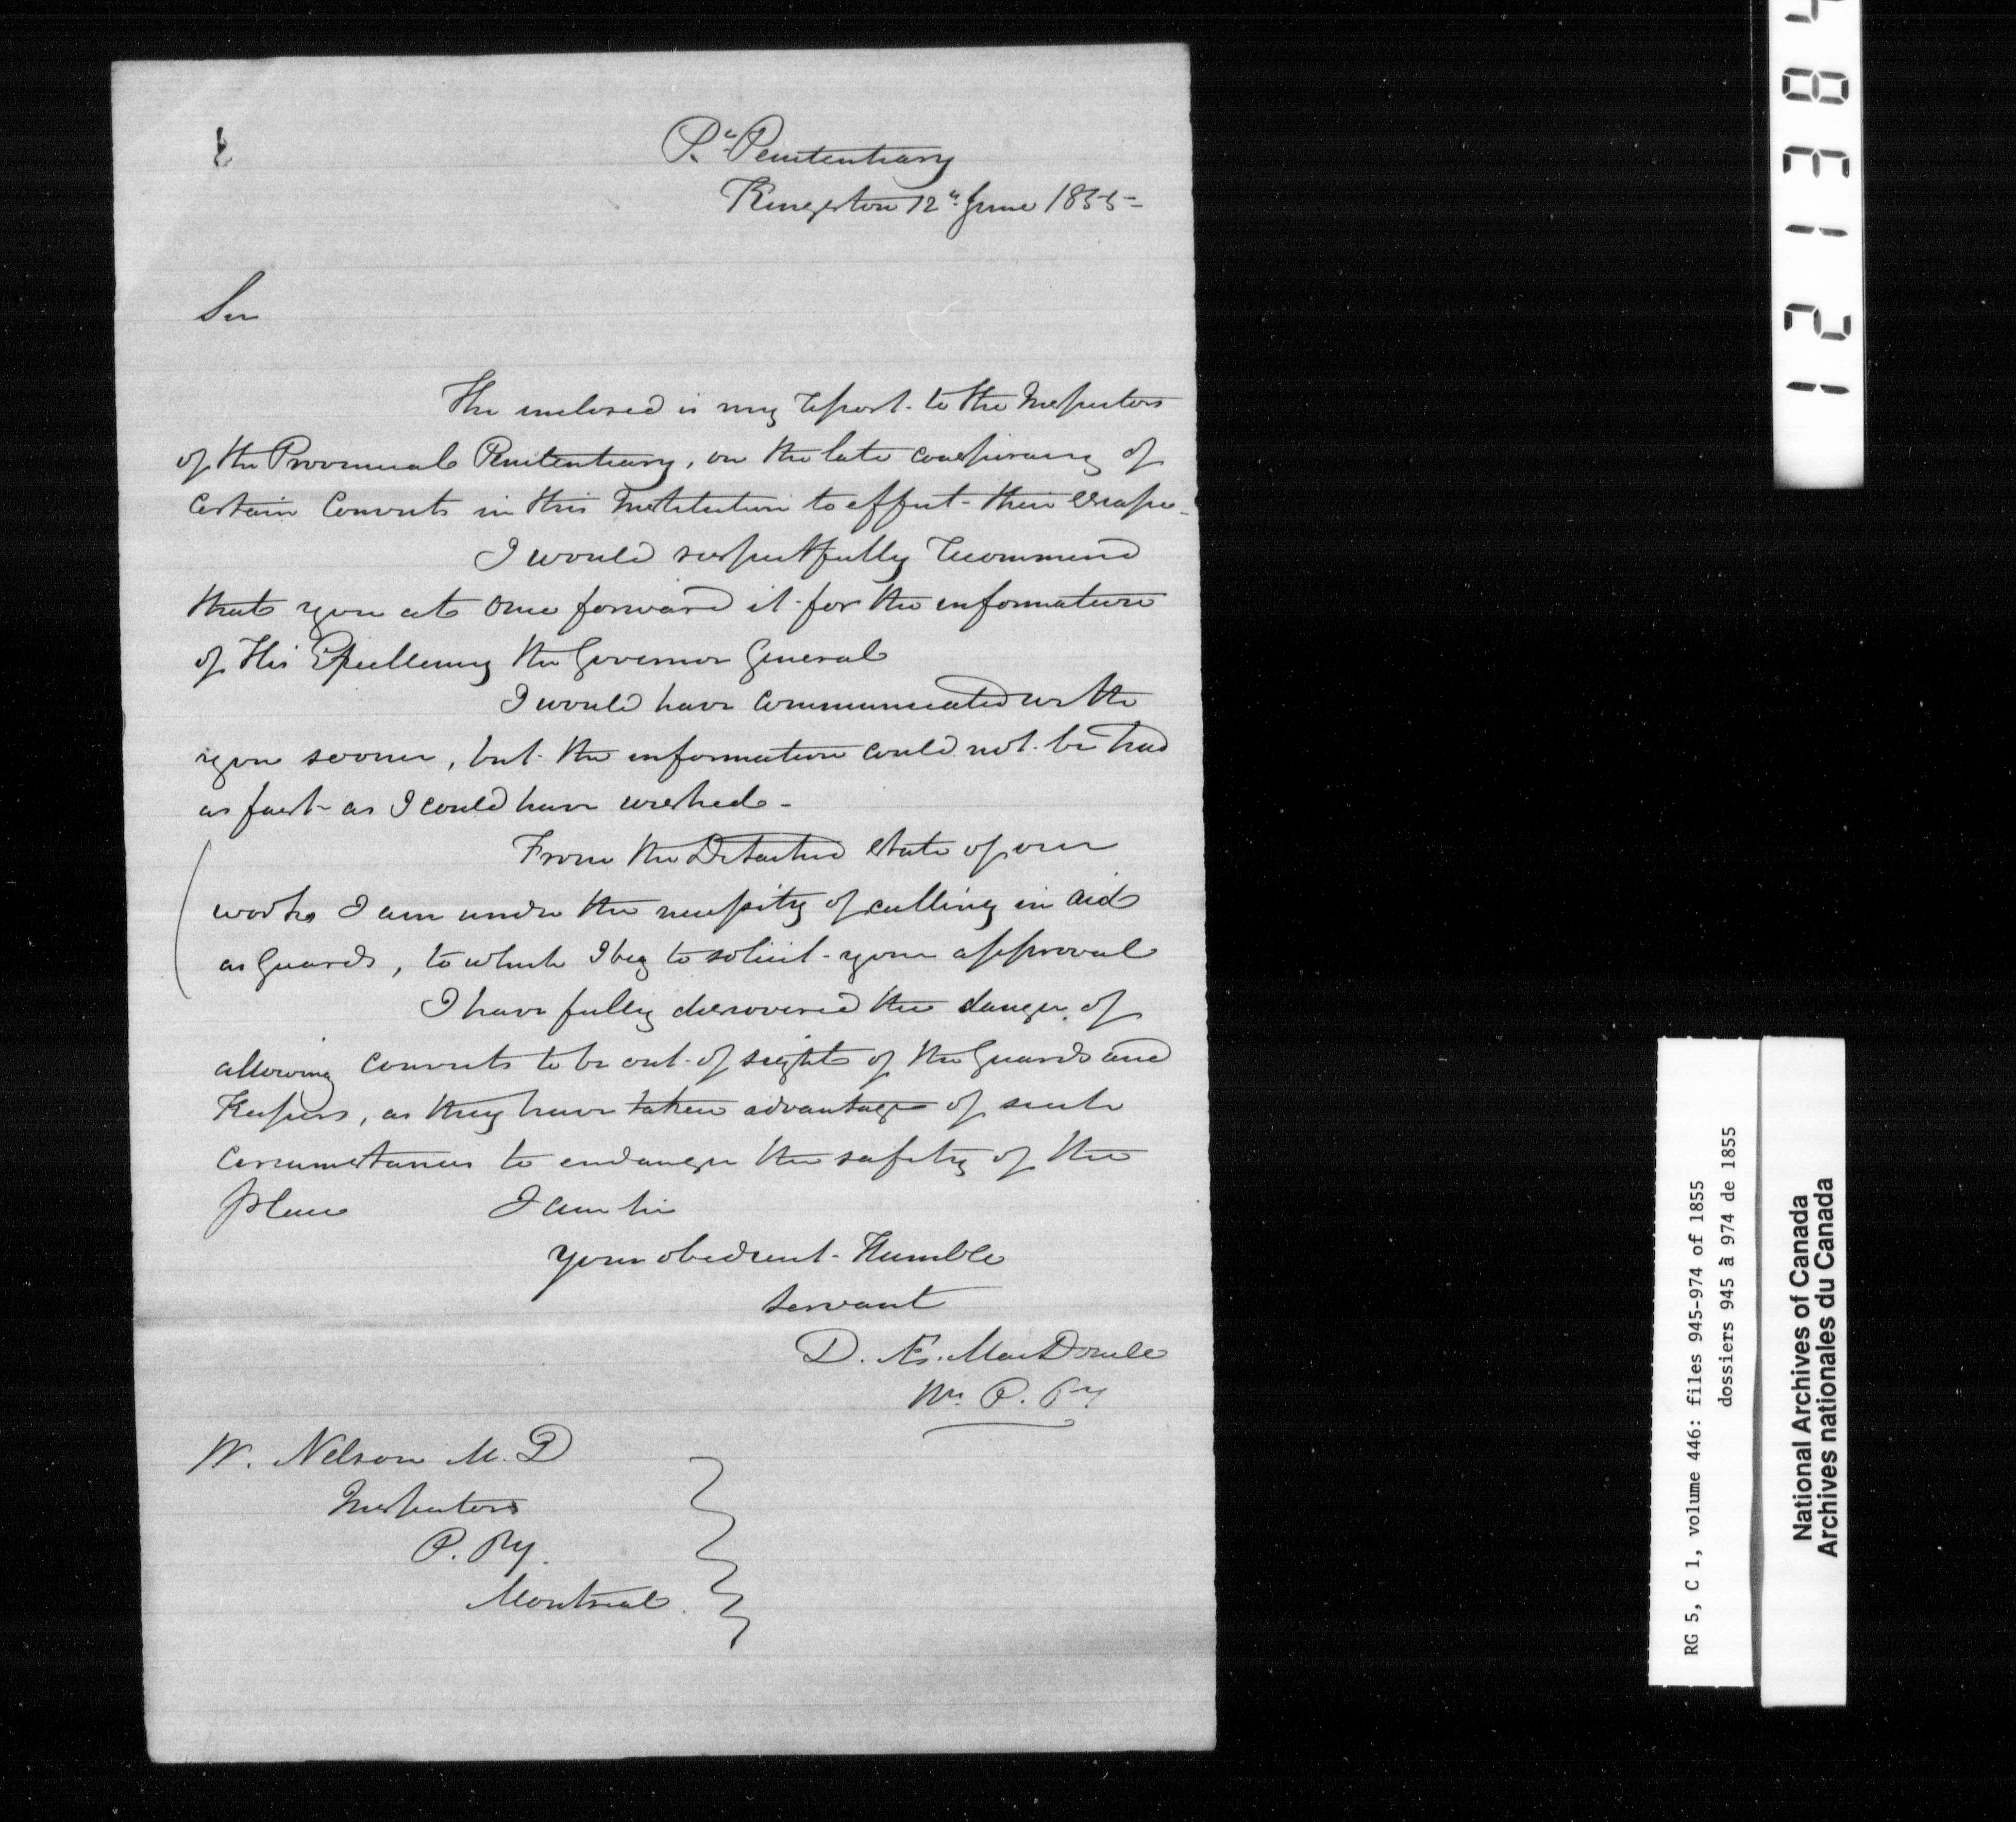 Pl. Penitentiary
Kingston 12th June 1855 =
Sir
The enclosed is my report to the Inspectors
of the Provincial Penitentiary, on the late conspiracy of
certain Convicts in this Institution to effect their escape.
I would respectfully recommend
that you at once forward it for the information
of His Excellency the Governor General
I would have communicated with
you sooner, but the information could not be had
as fast as I could have wished -
From the Detached state of our
works I am under the necessity of calling in aid
as Guards, to which I beg to solicit your approval
I have fully discovered the danger of
allowing convicts to be out of sight of the Guards and
Keepers, as they have taken advantage of such
circumstances to endanger the safety of the
place I am Sir
Your obedient Humble
Servant
D. Æ. MacDonell
Wn. P. Py
W. Nelson M. D
Inspectors
P. Py.
Montreal.
121384
RG 5, C 1, volume 446: files 945-974 of 1855
dossiers 945 à 974 de 1855
National Archives of Canada
Archives nationales du Canada